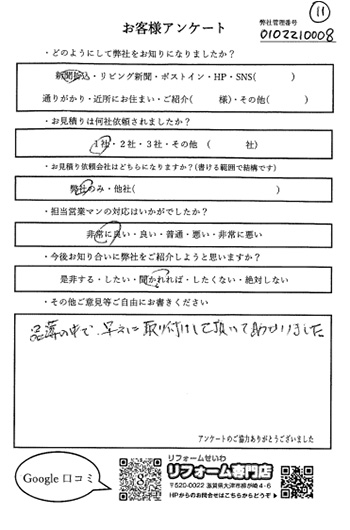 ⑪
お客様アンケート
弊社管理番号
0102210008
・どのようにして弊社をお知りになりましたか？
新聞折込・リビング新聞・ポストイン・HP・SNS( )
通りがかり・近所にお住まい・ご紹介( 様)・その他( )
・お見積りは何社依頼されましたか？
1社・2社・3社・その他 ( 社)
・お見積り依頼会社はどちらになりますか？(書ける範囲で結構です)
弊社のみ・他社( )
・担当営業マンの対応はいかがでしたか？
非常に良い・良い・普通・悪い・非常に悪い
・今後お知り合いに弊社をご紹介しようと思いますか？
是非する・したい・聞かれれば・したくない・絶対しない
・その他ご意見等ご自由にお書きください
品薄の中で、早急に取り付けして頂いて助かりました
アンケートのご協力ありがとうございました
Google 口コミ
リフォームせいわ
リフォーム専門店
〒520-0022 滋賀県大津市柳が崎4-6
HPからのお問合せはこちらからどうぞ